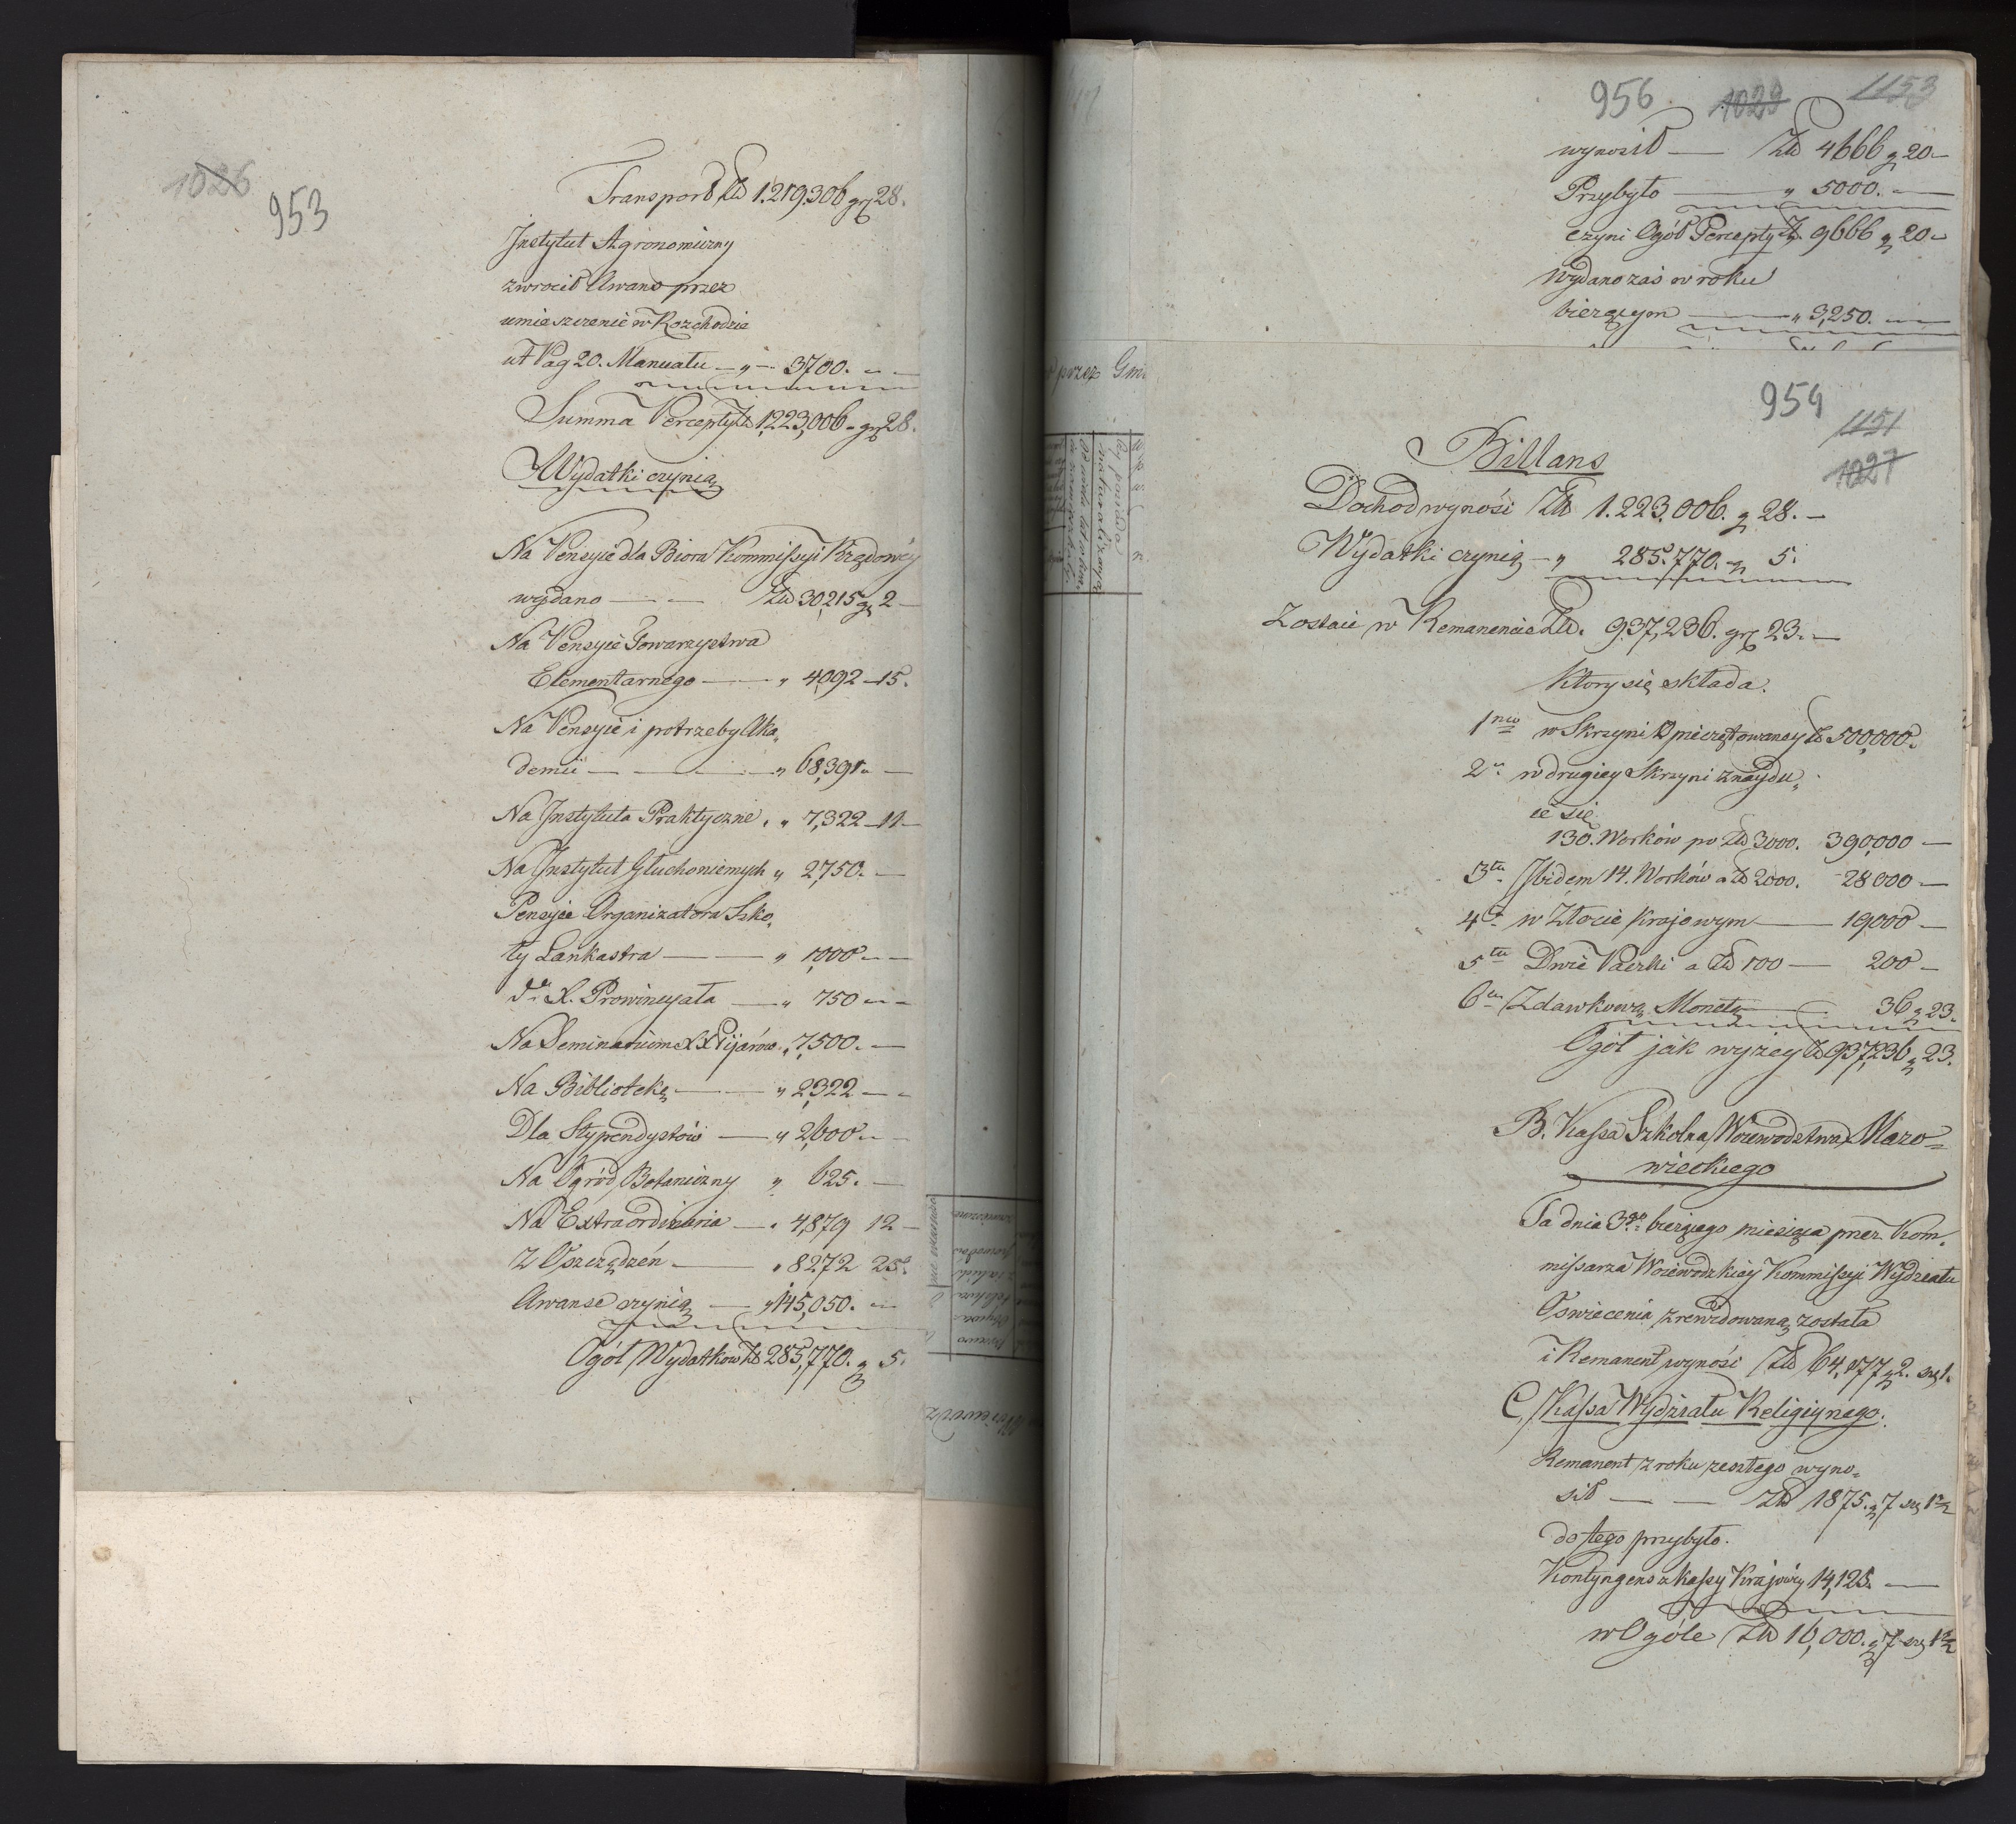 1026
953
Transport Złł 1.219.306 gr 28.
Instytut Agronomiczny
zwrocił Awans przez
umieszczenie w Rozchodzie
ut Pag 20. Manuału — „ — 3700. — —
Summa Percepty Zł 1,223,006 - gr 28.
Wydatki czynią
Na Pensyie dla Biora Kommissyi Rządowéy
wydano — — Złł 30,215 g 2 —
Na Pensyie Towarzystwa
Elementarnego — — „ 4092 — 15.
Na Pensyie i potrzeby Aka„
demii — — — „ 68,391 „ —
Na Instytuta Praktyczne . „ 7,322 — 11 —
Na Instytut Głuchoniemych „ 2,750. —
Pensyie Organizatora Szko„
ły Lankastra — — „ 1,000 — —
do X. Prowincyała — „ 750 — —
Na Seminarium XX Pijarów „ 7,500. —
Na Bibliotekę — — „ 2,322 — —
Dla Stypendystów — „ 2,600 — —
Na Ogród Botaniczny „ 625. —
Na Extraordinaria — „ 4,879 12 —
Z Oszczędzeń — „ 8272 25.
Awanse czynią — „ 145,050. —
Ogół Wydatkow Zł 285,770. g 5.
956 1029 1153
wynosił — Złł 4666 g 20 —
Przybyło — „ 5000. —
czyni Ogół Percepty Zł. 9666 g 20 —
wydano zaś w roku
bieżącym — „ 3,250. —
przez Gmi
954
1151
1027
Billans
Dochod wynosi Złł 1.223.006. g 28. —
Wydatki czynią — „ 285.770. g 5.
Zostaie w Remanencie Złł. 937,236. gr 23. —
Ktory się składa.
1mo w Skrzyni Opieczętowaney Zł 500,000.
2o w drugiey Skrzyni znaydu„
ie się
130. Worków po Złł 3000. 390,000 —
3tio Ibidem 14. Worków a Zł 2000. 28000 —
4to w Złocie krajowym — 19,000 —
5to Dwie Paczki a Złł 100 — 200 —
6to Zdawkową Monetą — 36 g 23.
Ogół jak wyżey Zł 937,236 g 23.
B. Kassa Szkolna Woiewodztwa Mazo=
wieckiego
Ta dnia 3go bieżącego miesiąca przez Kom„
missarza Woiewodzkiey Kommissyi Wydziału
Oswiecenia zrewidowaną została
i Remanent wynosi Złł 64,177 g 2. sz 1.
C. Kassa Wydziału Religiynego.
Remanent z roku zeszłego wyno=
sił — — Złł 1875. g 7 sz 1 1/2
do tego przybyło.
Kontyngens z kassy Krajowéy 14,125. —
w Ogóle Złł 16,000. g 7 sz 1 1/2